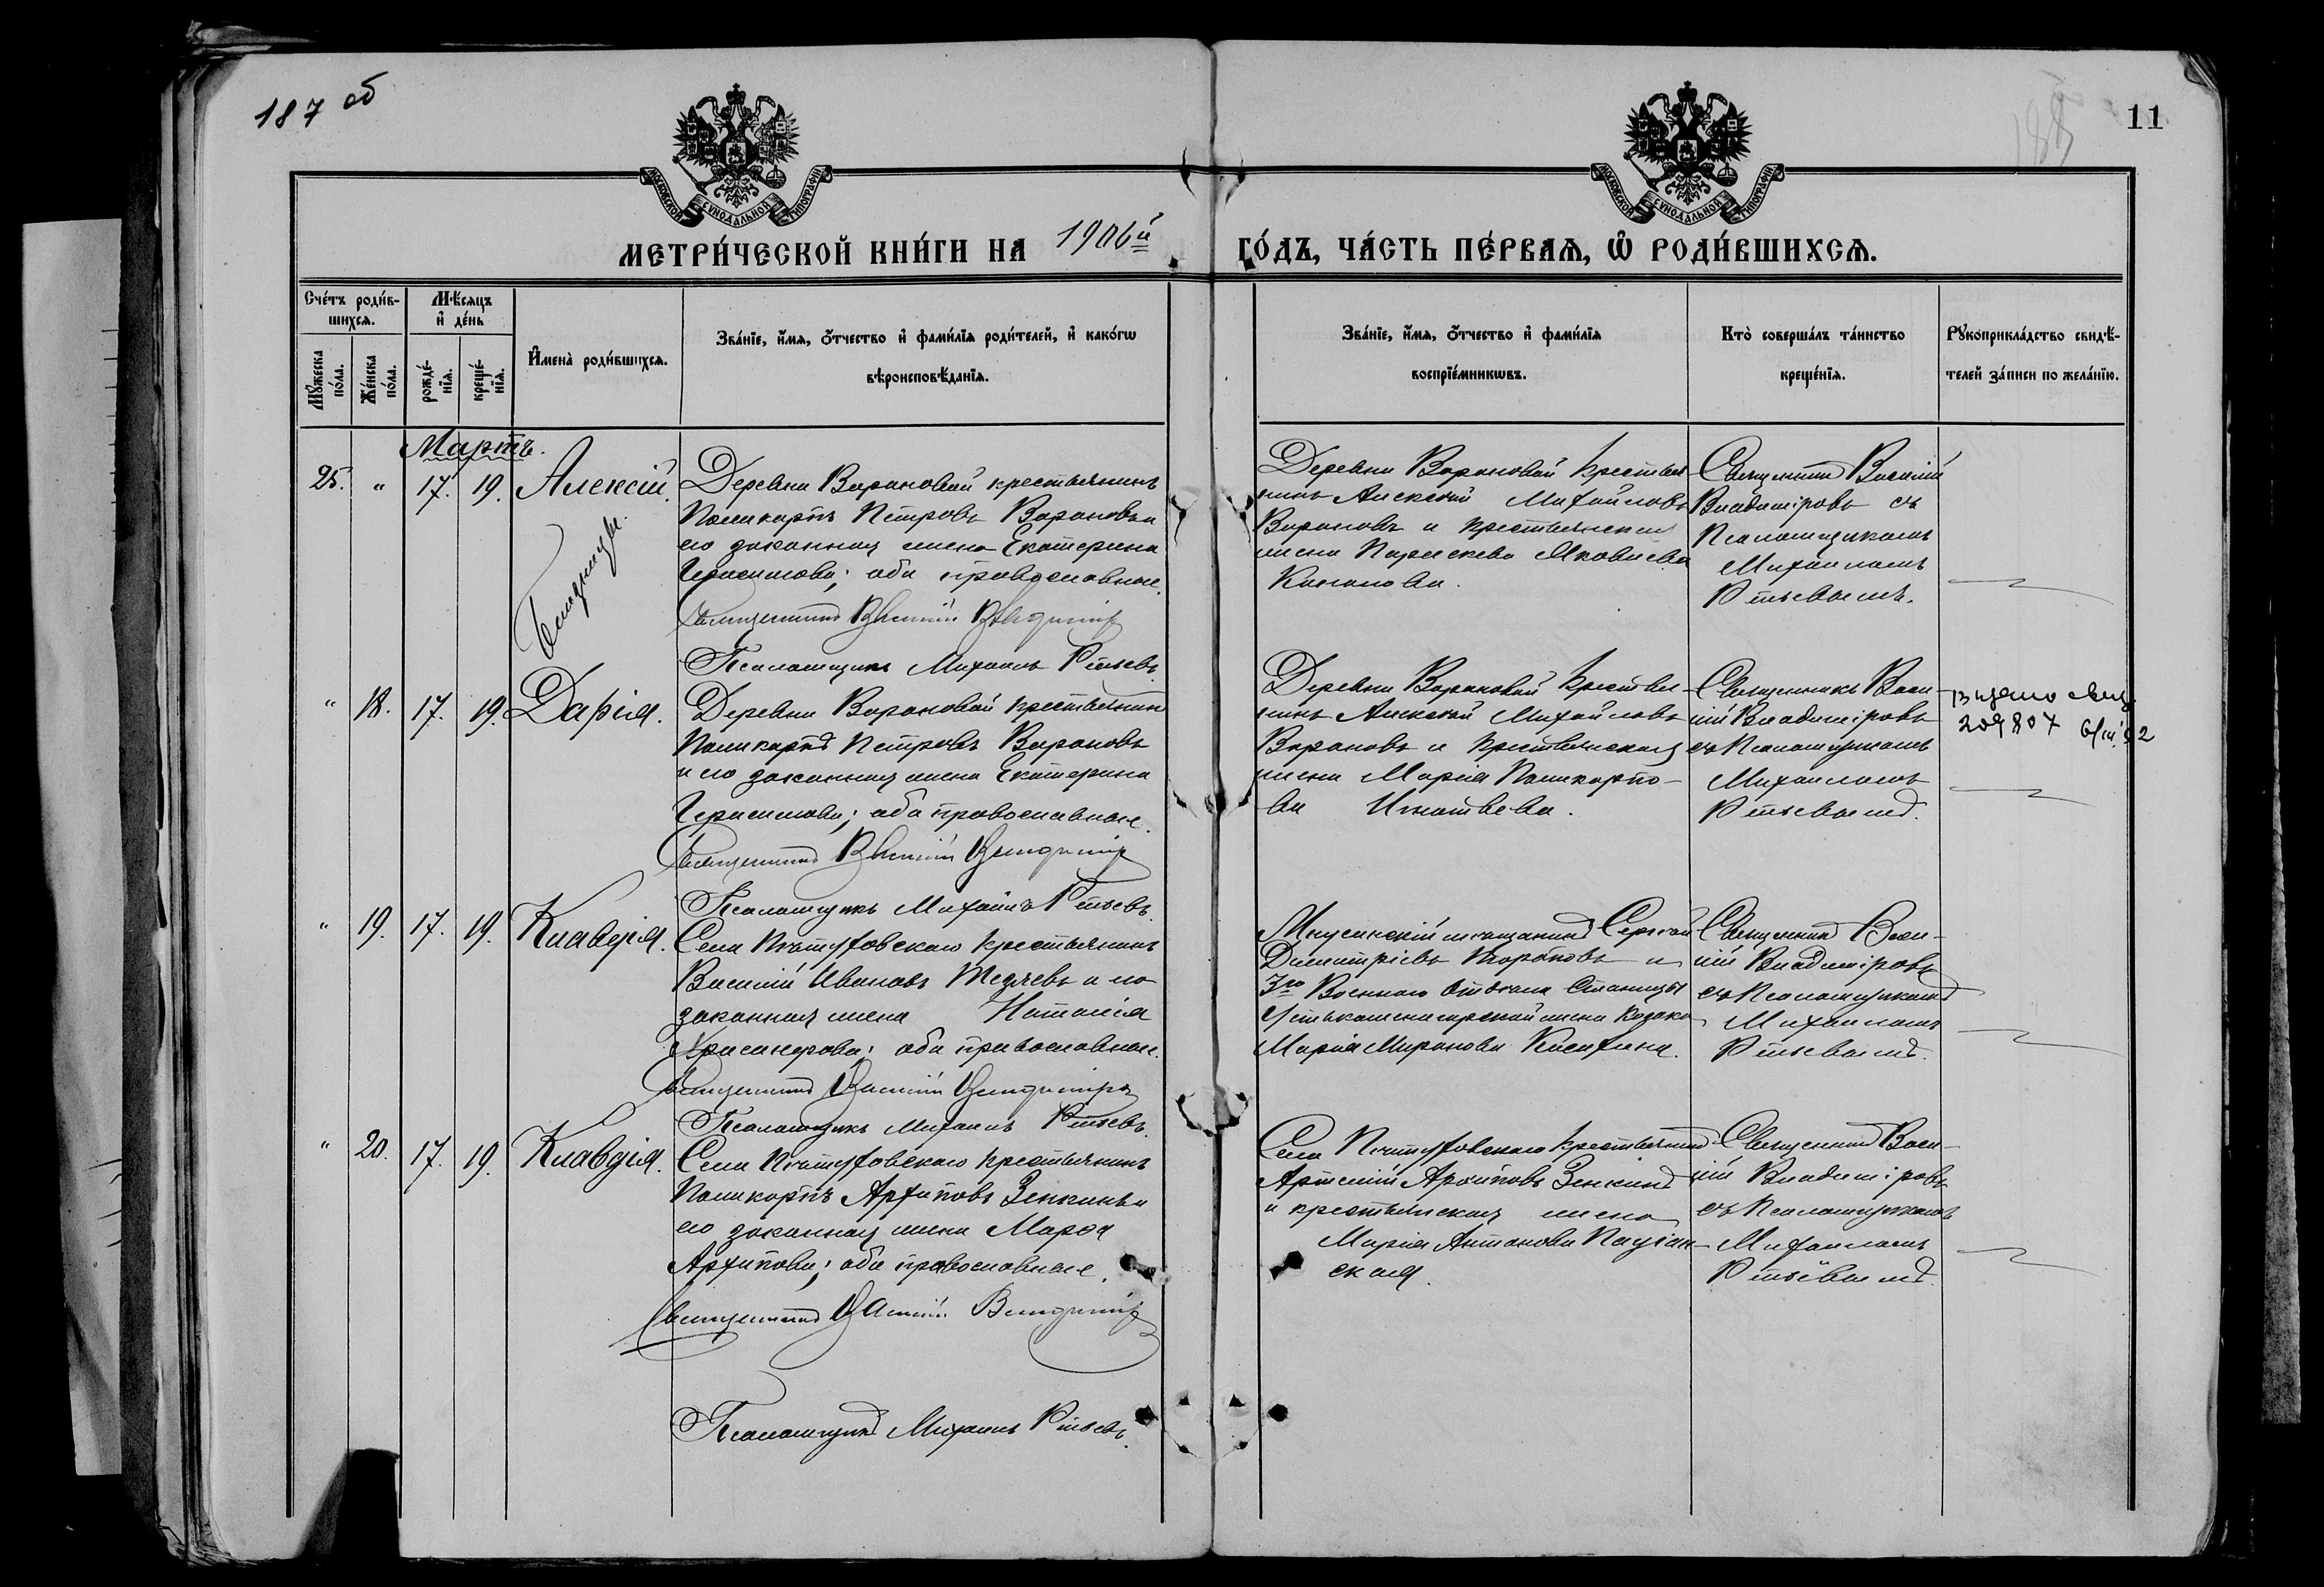 187 об
188
11
МОСКОВСКОЙ СѴНОДАЛЬНОЙ ТИПОГРАФІИ
МОСКОВСКОЙ СѴНОДАЛЬНОЙ ТИПОГРАФІИ
МЕТРИ́ЧЕСКОЙ КНИ́ГИ НА 1906й ГО́ДЪ, ЧА́СТЬ ПЕ́РВАѦ, Ѡ҆ РОДИ́ВШИХСѦ.
Сче́тъ роди́в-
шихсѧ.
Мꙋ́жеска
по́ла.
Же́нска
по́ла.
Мѣ́сѧцъ
и҆ де́нь
рожде́-
нїѧ.
креще́-
нїѧ.
И҆мена̀ роди́вшихсѧ.
Зва́нїе, и҆́мѧ, ѻ҆́тчество и҆ фами́лїѧ роди́телей, и҆ како́гѡ
вѣроисповѣ́данїѧ.
Зва́нїе, и҆́мѧ, ѻ҆́тчество и҆ фами́лїѧ
воспрїе́мникѡвъ.
Кто̀ соверша́лъ та́инство
креще́нїѧ.
Рꙋкоприкла́дство свидѣ́-
телей за́писи по жела́нїю.
Мартъ.
25. " 17. 19. Алексій.
Близнецы.
Деревни Вороновой крестьянинъ
Поликарпъ Петровъ Вороновъ и
его законная жена Екатерина
Герасимова; оба православные.
Священникъ Василій Владиміровъ
Псаломщикъ Михаилъ
Деревни Вороновой крестья
нинъ Алексѣй Михайловъ
Вороновъ и крестьянская
жена Параскева Яковлева
Священникъ Василій
Владиміровъ съ
Псаломщикомъ
Михаиломъ
" 18. 17. 19. Дарія.
Деревни Вороновой крестьянинъ
Поликарпъ Петровъ Вороновъ
и его законная жена Екатерина
Герасимова; оба православные.
Священникъ Василій Владиміровъ
Псаломщикъ Михаилъ
Деревни Вороновой крестья-
нинъ Алексѣй Михайловъ
Вороновъ и крестьянская
жена Марія Поликарпо-
ва Игнатьева.
Священникъ Васи-
лій Владиміровъ
съ Псаломщикомъ
Михаиломъ
209807
" 19. 17. 19. Клавдія.
Села крестьянинъ
Василій Ивановъ и его
законная жена Наталія
оба православные.
Священникъ Василій Владиміровъ
Псаломщикъ Михаилъ
Минусинскій мѣщанинъ Сергѣй
Димитріевъ и
3го Военнаго Отдѣла Станицы
Устькаменогорской жена казака
Марія Миронова
Священникъ Васи-
лій Владиміровъ
съ Псаломщикомъ
Михаиломъ
" 20. 17. 19. Клавдія.
Села крестьянинъ
Поликарпъ Архиповъ Зенкинъ и
его законная жена Марѳа
Архипова; оба православные.
Священникъ Василій Владиміровъ
Псаломщикъ Михаилъ
Села крестьянинъ
Артемій Архиповъ Зенкинъ
и крестьянская жена
Марія Антонова
ская.
Священникъ Васи-
лій Владиміровъ
съ Псаломщикомъ
Михаиломъ